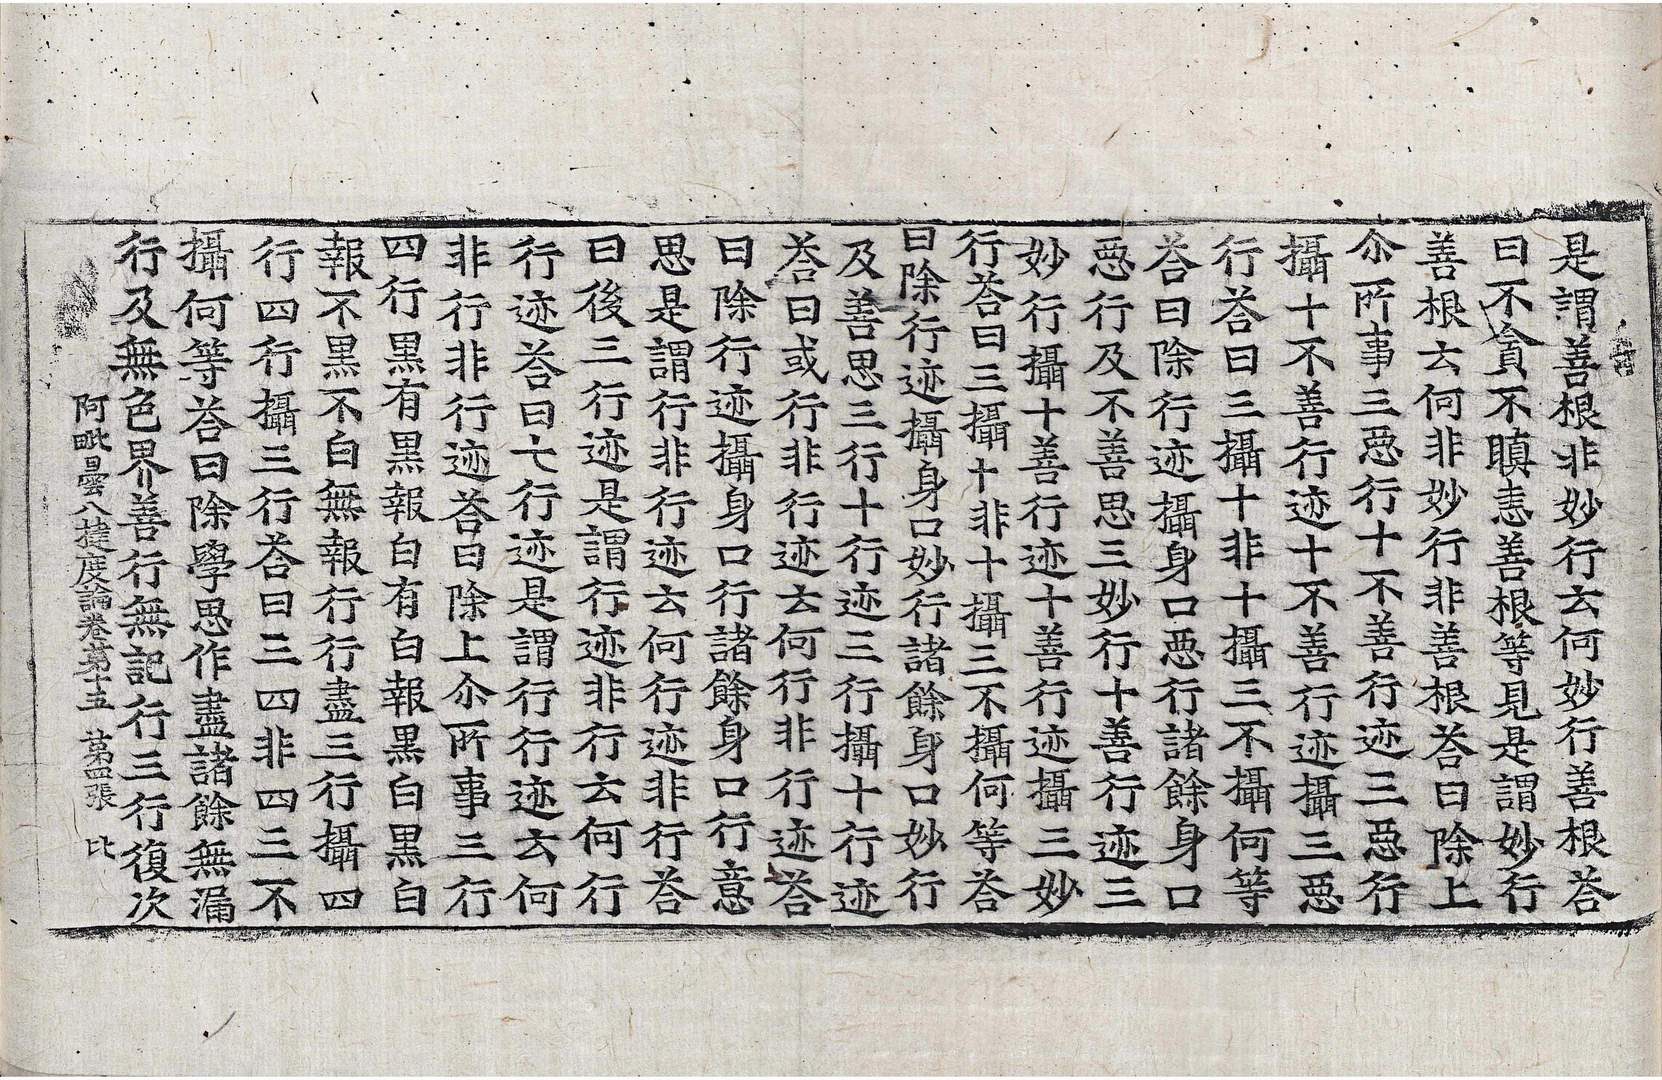 是謂善根非妙行云何妙行善根荅
曰不貪不瞋恚善根等見是謂妙行
善根云何非妙行非善根荅曰除上
尒所事三惡行十不善行迹三惡行
攝十不善行迹十不善行迹攝三惡
行荅曰三攝十非十攝三不攝何等
荅曰除行迹攝身口惡行諸餘身口
惡行及不善思三妙行十善行迹三
妙行攝十善行迹十善行迹攝三妙
行荅曰三攝十非十攝三不攝何等荅
曰除行迹攝身口妙行諸餘身口妙行
及善思三行十行迹三行攝十行迹
荅曰或行非行迹云何行非行迹荅
曰除行迹攝身口行諸餘身口行意
思是謂行非行迹云何行迹非行荅
曰後三行迹是謂行迹非行云何行
行迹荅曰七行迹是謂行行迹云何
非行非行迹荅曰除上尒所事三行
四行黑有黑報白有白報黑白黑白
報不黑不白無報行行盡三行攝四
行四行攝三行荅曰三四非四三不
攝何等荅曰除學思作盡諸餘無漏
行及無色界善行無記行三行復次
阿毗曇八揵度論卷第十五 第四張 比